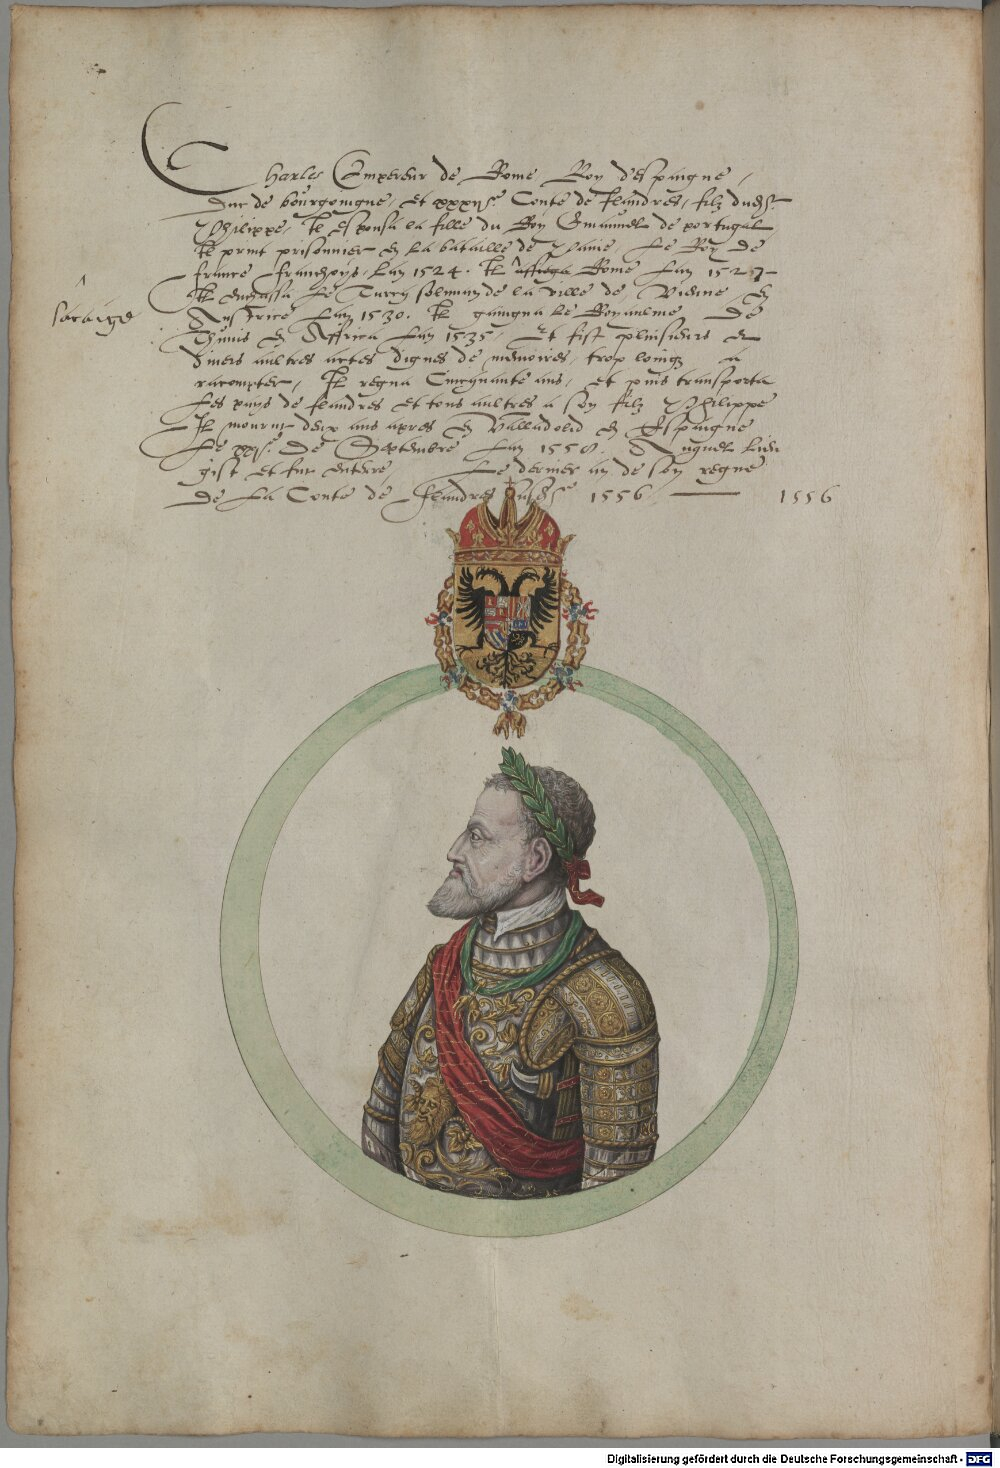 Charles Empereur de Rome Roy d'espaigne,
Duc de bourgoingne, et xxxije Conte de flandres, filz dudit
Philippe, Il espousa la fille du Roy Emanuel de portugal
Il print prisonnier en la bataille de Pavie, Le Roy de
france françoys, Lan 1524. Il assiega Rome Lan 1527
Il enchassa Le Turcq soliman de la ville de, Vienne, en
Austrice Lan 1530. Il gaingna le Royaulme De
Thunis en Affrica Lan 1535, Et fist plusieurs et
divers aultres actes dignes de memoires, trop loingz a
racompter, Il regna Cincquante ans, et puis transporta
Les pays de flandres et tous aultres a son filz Philippe
Il mourut deux ans apres en Valladolid en Espaigne
Le xxje. De Septembre Lan 1558. Auquel lieu
gist et fut enterré Le dernier an de son regne
De La Conté de flandres 1556 1556
Digitalisierung gefördert durch die Deutsche Forschungsgemeinschaft - DFG